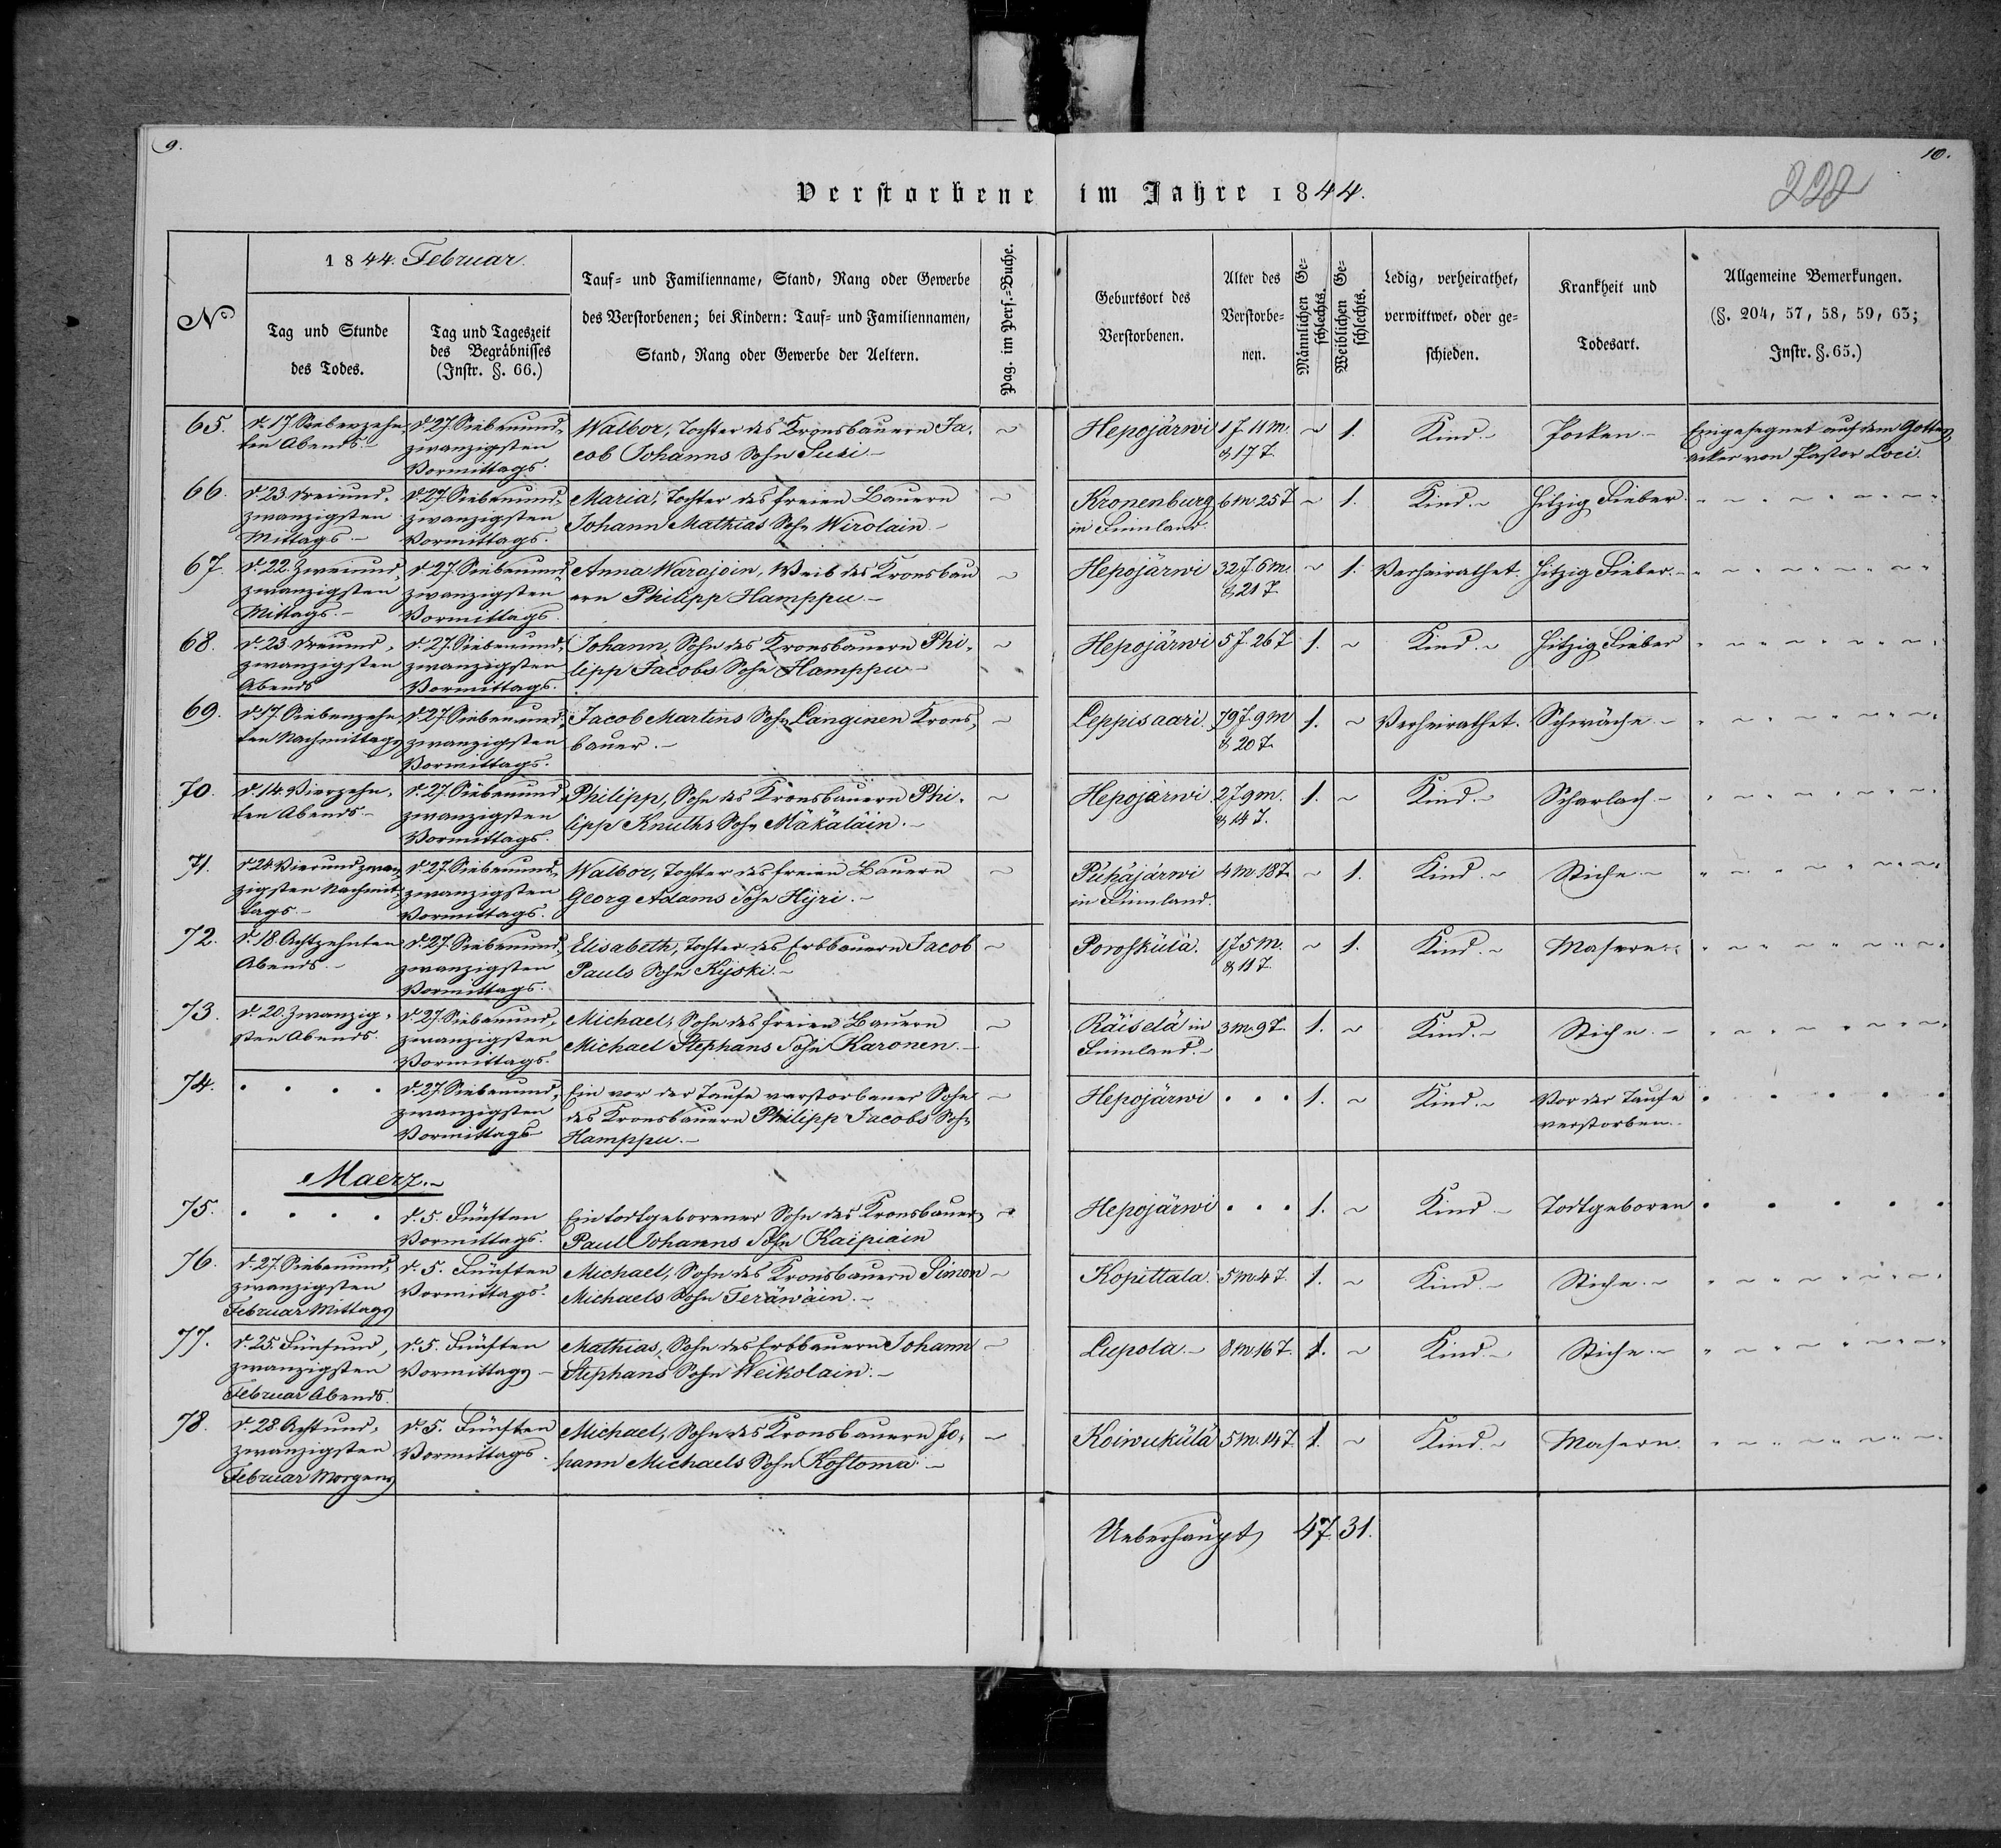 9.
10.
Verstorbene im Jahre 1844.
228
No
1844. Februar.
Tag und Stunde
des Todes.
Tag und Tageszeit
des Begräbnisses
(Instr. §. 66.)
Tauf- und Familienname, Stand, Rang oder Gewerbe
des Verstorbenen; bei Kindern: Tauf- und Familiennamen,
Stand, Rang oder Gewerbe der Aeltern.
Pag. im Pers.-Buche.
Geburtsort des
Verstorbenen.
Alter des
Verstorbe-
nen.
Männlichen Ge-
schlechts.
Weiblichen Ge-
schlechts.
Ledig, verheirathet,
verwittwet, oder ge-
schieden.
Krankheit und
Todesart.
Allgemeine Bemerkungen.
(§. 204, 57, 58, 59, 63;
Instr. §. 65.)
65. d. 17. Siebenzehn- d. 27. Siebenund- Walbor, Tochter des Kronsbauern Ja- ~ Hepojärwi 1 J. 11 M. ~ 1. Kind.- Pocken.- Eingesegnet auf dem Gottes-
ten Abends.- zwanzigsten cob Johanns Sohn Susi.- & 17 T. acker von Pastor Loci.
Vormittags.
66. d. 23. Dreiund- d. 27. Siebenund- Maria, Tochter des freien Bauern ~ Kronenburg 6 M. 25 T. ~ 1. Kind.- Hitzig Fieber.
zwanzigsten zwanzigsten Johann Mathias Sohn Wirolain.- in Finnland.
Mittags.- Vormittags.
67. d. 22. Zweiund- d. 27. Siebenund- Anna Warajoin, Weib des Kronsbau- ~ Hepojärwi 32 J. 6 M. ~ 1. Verheirathet. Hitzig Fieber.-
zwanzigsten zwanzigsten ern Philipp Hamppu.- & 21 T.
Mittags.- Vormittags.
68. d. 23. Dreiund- d. 27. Siebenund- Johann, Sohn des Kronsbauern Phi- ~ Hepojärwi 5 J. 26 T. 1. ~ Kind.- Hitzig Fieber
zwanzigsten zwanzigsten lipp Jacobs Sohn Hamppu-
Abends Vormittags.
69. d. 17. Siebenzehn- d. 27. Siebenund- Jacob Martins Sohn Langinen Krons- ~ Leppisaari. 79 J. 9 M. 1. ~ Verheirathet. Schwäche-
ten Nachmittags zwanzigsten bauer.- & 20 T.
Vormittags.
70. d. 14. Vierzehn- d. 27. Siebenund- Philipp, Sohn des Kronsbauern Phi- ~ Hepojärwi 2 J. 9 M. 1. ~ Kind.- Scharlach-
ten Abends.- zwanzigsten lipp Knuths Sohn Mäkäläin.- & 14 T.
Vormittags.
71. d. 24. Vierundzwan- d. 27. Siebenund- Walbor, Tochter des freien Bauern ~ Pühäjärwi 4 M. 18 T. ~ 1. Kind.- Stiche-
zigsten Nachmit- zwanzigsten Georg Adams Sohn Hijri.- in Finnland.
tags.- Vormittags.
72. d. 18. Achtzehnten d. 27. Siebenund- Elisabeth, Tochter des Erbbauern Jacob ~ Poroskülä. 1 J. 5 M. ~ 1. Kind.- Masern.-
Abends.- zwanzigsten Pauls Sohn Kijski.- & 11 T.
Vormittags.
73. d. 20. Zwanzig- d. 27. Siebenund- Michael, Sohn des freien Bauern ~ Räiselä in 3 M. 9 T. 1. ~ Kind.- Stiche.-
sten Abends. zwanzigsten Michael Stephans Sohn Karonen.- Finnland.-
Vormittags.
74. . . . . d. 27. Siebenund- Ein vor der Taufe verstorbener Sohn ~ Hepojärwi . . . 1. ~ Kind.- Vor der Taufe . . . . .
zwanzigsten des Kronsbauern Philipp Jacobs Sohn verstorben.-
Vormittags Hamppu.-
Maerz.-
75. . . . . d. 5. Fünften Ein todtgeborener Sohn des Kronsbauern ~ Hepojärwi . . . 1. ~ Kind- Todtgeboren . . . . .
Vormittags. Paul Johanns Sohn Kaipiain
76. d. 27. Siebenund- d. 5. Fünften Michael, Sohn des Kronsbauern Simon ~ Kopittala. 5 M. 4 T. 1. ~ Kind- Stiche.-
zwanzigsten Vormittags. Michaels Sohn Teräwäin.-
Februar Mittags
77. d. 25. Fünfund- d. 5. Fünften Mathias, Sohn des Erbbauern Johann ~ Lupola.- 8 M. 16 T. 1. ~ Kind.- Stiche.-
zwanzigsten Vormittags- Stephans Sohn Weikolain.-
Februar Abends.
78. d. 28. Achtund- d. 5. Fünften Michael, Sohn des Kronsbauern Jo- ~ Koiwukülä 5 M. 14 T. 1. ~ Kind.- Masern.
zwanzigsten Vormittags. hann Michaels Sohn Kostoma.-
Februar Morgens
Ueberhaupt 47. 31.